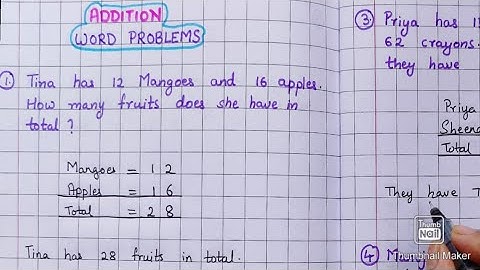 ADDITION
WORD PROBLEMS
1. Tina has 12 Mangoes and 16 apples.
How many fruits does she have in
total ?
Mangoes = 1 2
Apples = 1 6
Total = 2 8
Tina has 28 fruits in total.
3 Priya has
62 crayons.
they have
Priya
Total
They have
4
Thumb
Nail
Thumbnail Maker